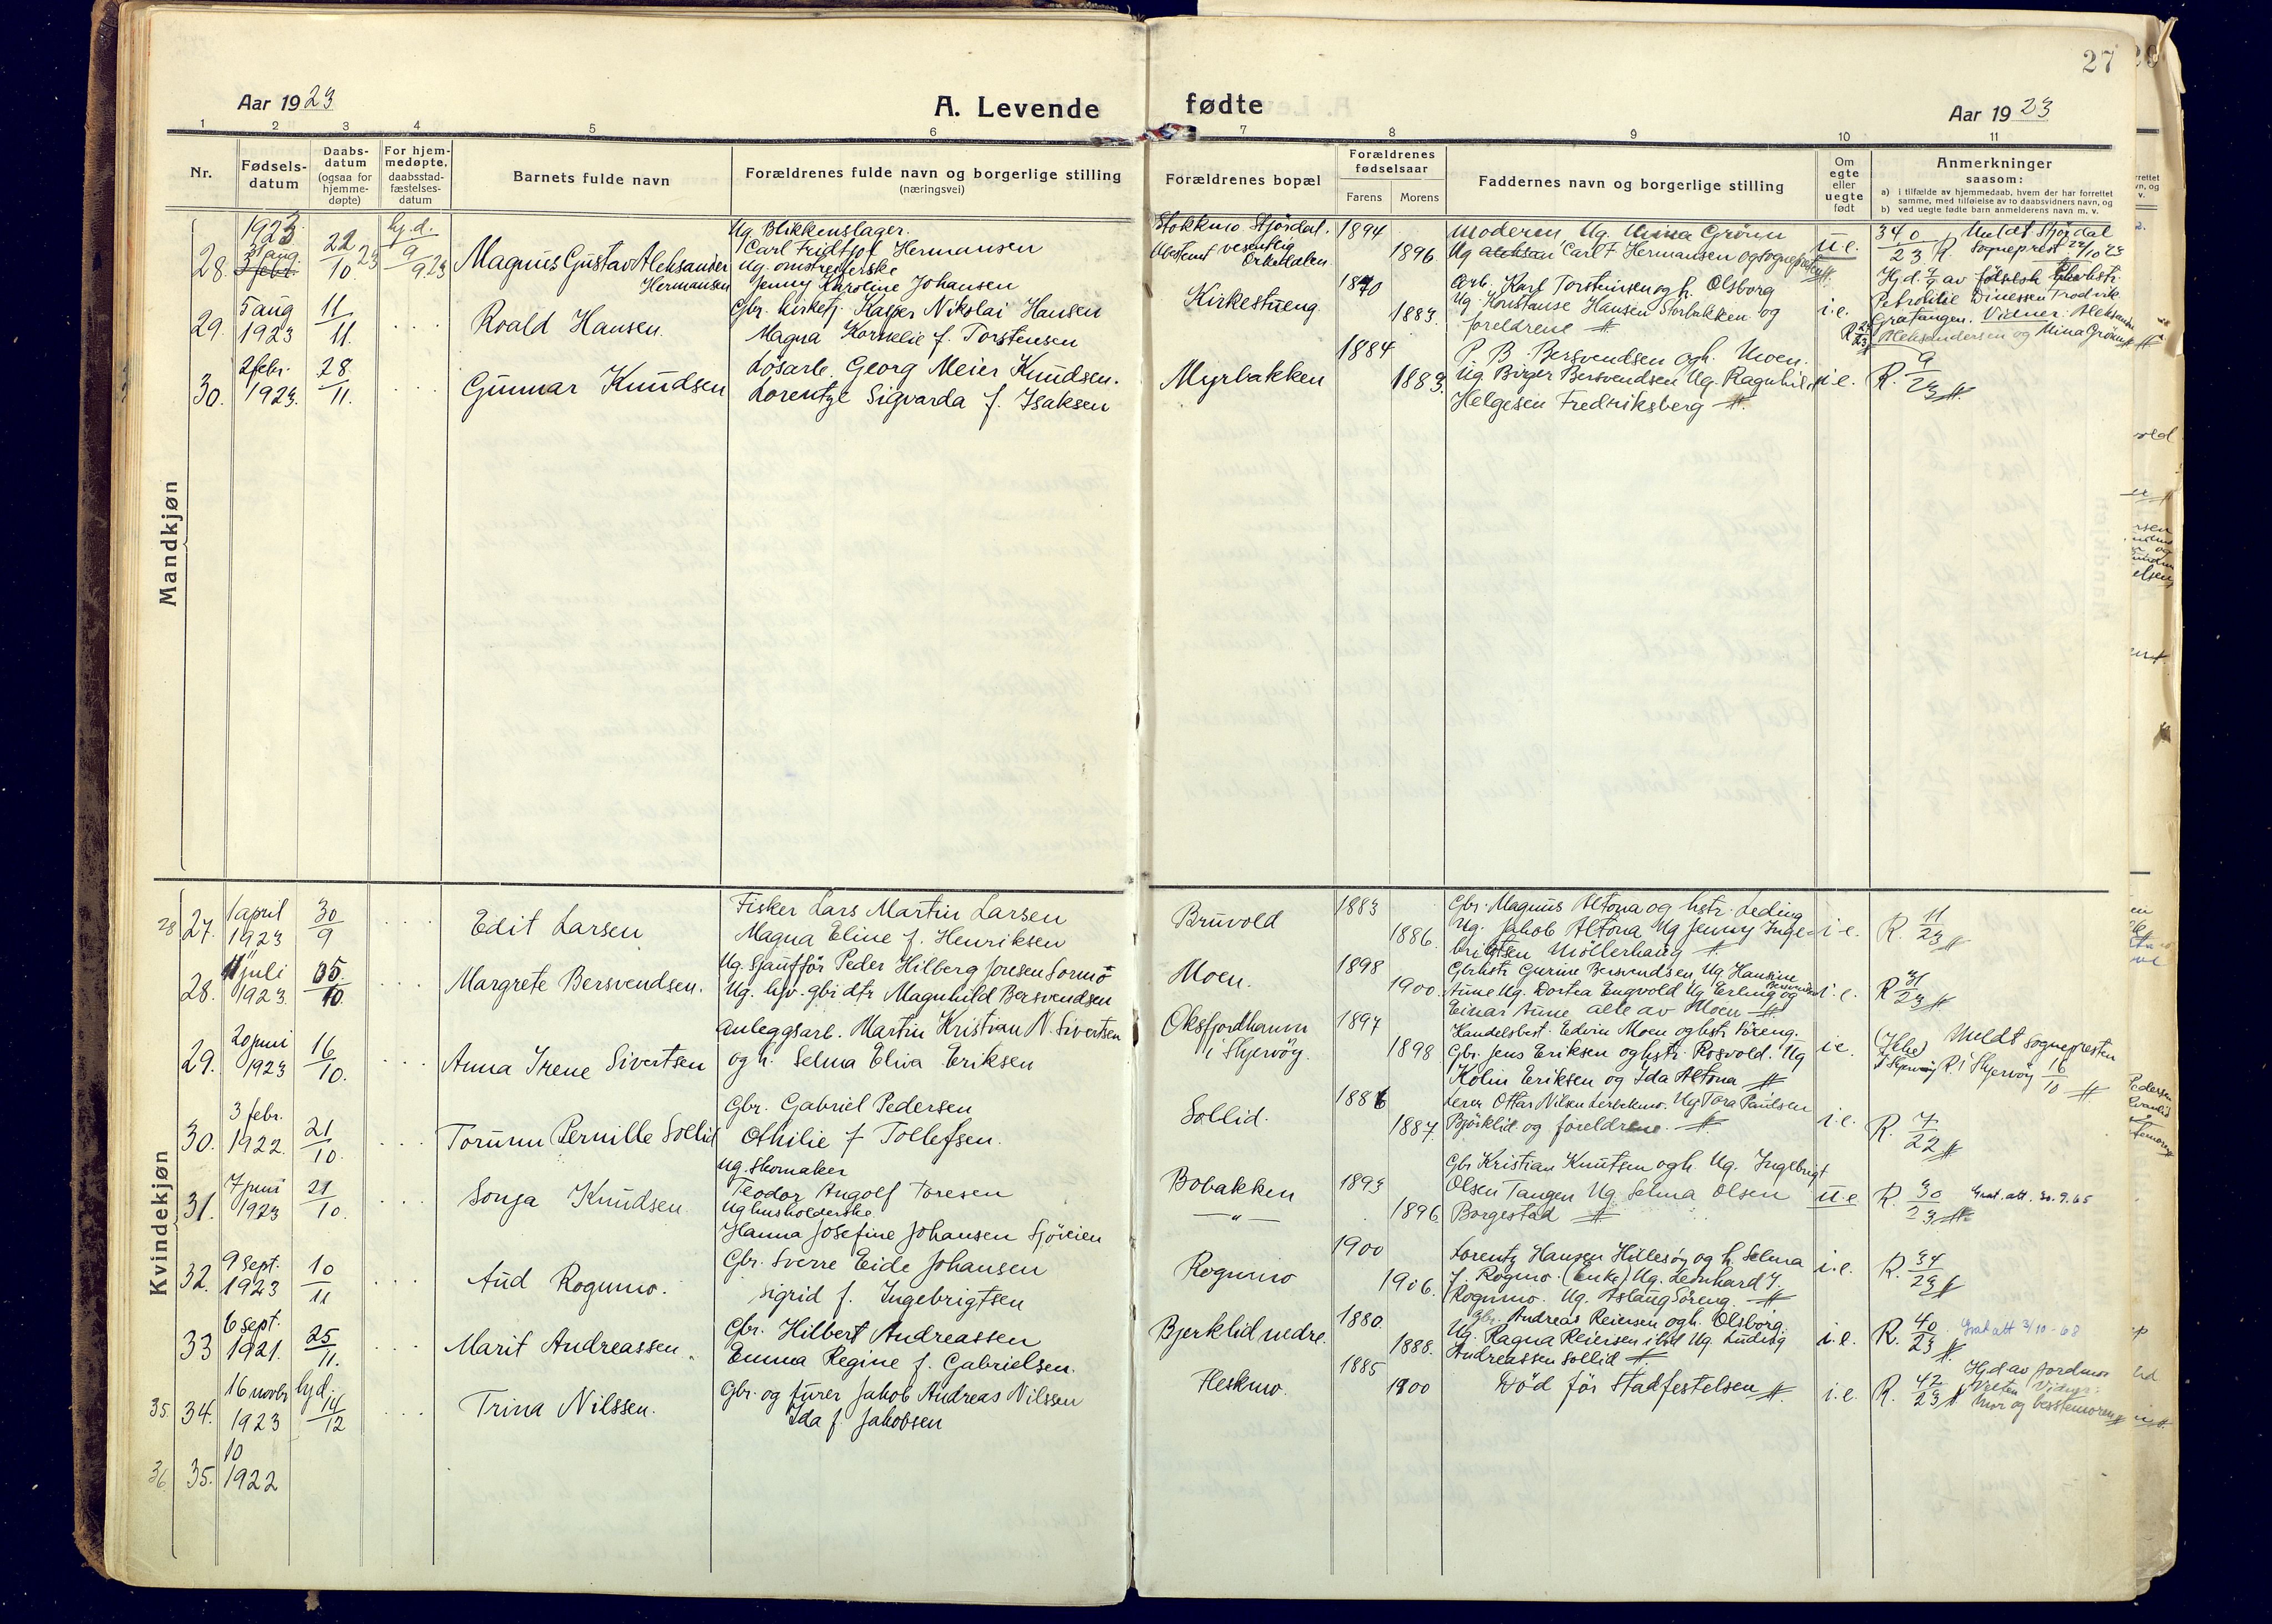 27
Aar 1923
A. Levende
fødte
Aar 1923
1 2 3 4 5 6 7 8 9 10 11
Nr.
Fødsels-
datum
Daabs-
datum
(ogsaa for
hjemme-
døpte)
For hjem-
medøpte,
daabsstad-
fæstelses-
datum
Barnets fulde navn
Forældrenes fulde navn og borgerlige stilling
(næringsvei)
Forældrenes bopæl
Forældrenes
fødselsaar
Farens
Morens
Faddernes navn og borgerlige stilling
Om
egte
eller
uegte
født
Anmerkninger
saasom:
a) i tilfælde av hjemmedaab, hvem der har forrettet
samme, med tilføielse av to daabsvidners navn, og
b) ved uegte fødte barn anmelderens navn m. v.
Mandkjøn
28. 1923 31 aug. 22/10 23 hj.d. 9/9 23
Magnus Gustav Aleksander
Hermansen
Ug. Blikkenslager.
Carl Fridtjof Hermansen
Ug. omstreiferske
Jenny Karoline Johansen
Stokkmo Stjördal.
Orkedalen
1894
1896
Moderen Ug. Mina Grönn
Ug Carl F Hermansen og sognepresten
u.e.
340/23 R. Meldt Stjördal
Sogneprest 22/10 23
29. 5 aug 1923 11/11
Roald Hansen.
Gbr. kirketj. Kasper Nikolai Hansen
Magna Kornelie f. Torstensen
Kirkestueng
1870
1883.
Arb. Karl Torsteinsen og h. Olsborg
Ug. Konstanse Hansen Storbakken og
foreldrene
i.e.
Petrolilie Dinessen Trodvik
Gratangen. Vidner: Aleksander
Aleksandersen og Mina Grönn
30. 2 febr. 1923. 28/11.
Gunnar Knudsen
Lösarb. Georg Meier Knudsen.
Lorentze Sigvarda f. Isaksen
Myrbakken
1884
1883.
P. B. Bersvendsen og h. Moen.
Ug. Birger Bersvendsen Ug. Ragnhild
Helgesen Fredriksberg
i.e.
R. 9/23
Kvindekjøn
28 27. 1 april 1923 30/9
Edit Larsen
Fisker Lars Martin Larsen
Magna Eline f. Henriksen
Bruvold
1883
1886.
Gbr. Magnus Altona og hstr. Leding
Ug. Jakob Altona Ug Jenny Inge-
brigtsen Möllerhaug
i.e.
R. 11/23
28. 11 juli 1923.
Margrete Bersvendsen.
Ug. Sjaufför Peder Hilberg Jonesen Sormo
Ug. hjv. gbr dtr Magnhild Bersvendsen
Moen.
1898
1900.
Gbrhstr Gurine Bersvendsen Ug Hansine
Aune Ug. Dortea Engvold Ug Erling og
Einar Aune alle av Moen
R 31/23
29. 20 juni 1923 16/10.
Anna Irene Sivertsen
Anleggsarb. Martin Kristian N. Sivertsen
og h. Selma Eliva Eriksen
Oksfjordhamn
i Skjervöy.
1897
1898
Handelsbest. Edvin Moen og hstr Söreng.
Gbr. Jens Eriksen og hstr. Rosvold. Ug
Kolin Eriksen og Ida Altona
i.e.
Meldt Sognepresten
i Skjervöy R. i Skjervöy 16/10
30. 3 febr. 1922. 21/10.
Torunn Pernille Sollid
Gbr. Gabriel Pedersen
Othilie f Tollefsen.
Sollid.
1886
1887.
Lærer Ottar Nilsen Lerbekmo. Ug Tora Paulsen
Björklid. og foreldrene.
i.e.
R. 7/22
31. 7 juni 1923 21/10.
Sonja Knudsen
Ug. Skomaker
Teodor Angolf Toresen
Ug husholderske
Hanna Josefine Johansen Sjöveien
Bobakken
— " —
1893
1896
Gbr Kristian Knutsen og h. Ug. Ingebrigt
Olsen Tangen Ug. Selma Olsen
Borgestad
u.e.
R. 30/23 Grat. att. 30.9.65
32. 9 sept. 1923 10/11
Aud Rognmo.
Gbr. Sverre Eide Johansen
Sigrid f. Ingebrigtsen
Rognmo
1900
1906.
Lorentz Hansen Hillesöy og h. Selma
f. Rogmo. (Enke) Ug. Leonhard J.
Rognmo. Ug. Aslaug Söreng.
i.e.
R. 34/23
33 6 sept. 1921. 25/11.
Marit Andreassen.
Gbr. Hilbert Andreassen
Emma Regine f. Gabrielsen.
Bjerklid nedre.
1880.
1888.
Gbr. Andreas Reiersen og h. Olsborg.
Ug. Ragna Reiersen ibid Ug. Ludvig
Andreassen Sollid
i.e.
R. 40/23 Grat att 3/10-68
35. 34. 16 novbr 1923 hjd. 14/12
Trina Nilssen.
Gbr. og furer Jakob Andreas Nilssen
Ida f. Jakobsen
Fleskmo.
1885
1900
Död för Stadfestelsen
i.e.
R. 42/23 Hjd av Jordmor
mor og bestemoren
36. 35. 10 1922